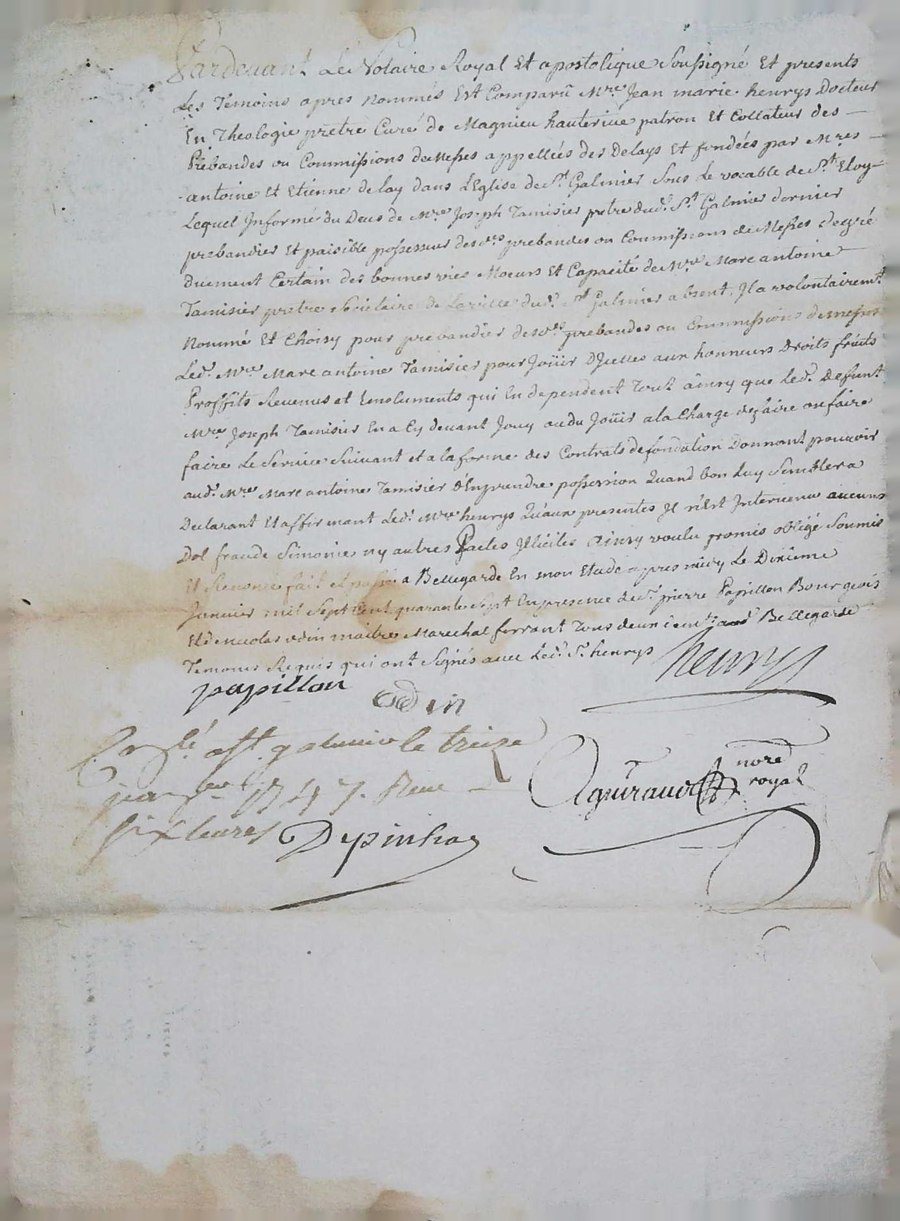 Pardevant Le Notaire Royal Et apostolique Soussigné Et presents
Les Temoins apres nommés Est Comparu Mre Jean marie henrys Docteur
En Theologie prêtre Curé de Magnieu hauterive patron Et Collateur des
Prebandes ou Commissions de Messes appellées des Delays Et fondées par Mres
antoine Et Etienne delay dans L'Eglise de St Galmier Sous Le vocable de St Eloy
Lequel Informé du Deces de Mre Joseph Tamisier prêtre dud. St Galmier dernier
prebandier Et paisible possesseur desd. prebandes ou Commissions de Messes
duement Certain des bonnes vies Moeurs Et Capacité de Mre Marc antoine
Tamisier prêtre de La ville dud. St Galmier absent, Il a volontairemt
Nommé Et Choisy pour prebandier desd. prebandes ou Commissions de messes
Led. Mre Marc antoine Tamisier pour Joüir D'Icelles aux honneurs Droits fruits
Proffits Revenus et Emoluments qui En dependent Tout ainsy que Led. Deffunt
Mre Joseph Tamisier En a Cy devant Jouy ou du Joüir a la Charge de faire ou faire
faire Le Service Suivant et a la forme des Contrats de fondation Donnant pouvoir
aud. Mre Marc antoine Tamisier d'En prendre possession Quand bon Luy Semblera
Declarant Et affirmant Led. Mre henrys Qu'aux presentes Il n'Est Intervenu aucuns
Dol fraude Simonie ny autres Pactes Illicites ainsy voulu promis obligé Soumis
Et Renoncé fait et passé a Bellegarde En mon Etude apres midy Le Dixieme
Janvier mil Sept Cent quarante Sept En presence de Sr pierre Papillon Bourgeois
Et de nicolas odin maitre Marechal ferrant Tous deux aud. Bellegarde
Temoins Requis qui ont Signés avec Led. Sr henrys
papillon
odin
henrys
Conlé a St galmier le treize
janver 1747. Reçu
six livres
Depinhac
nore
royal